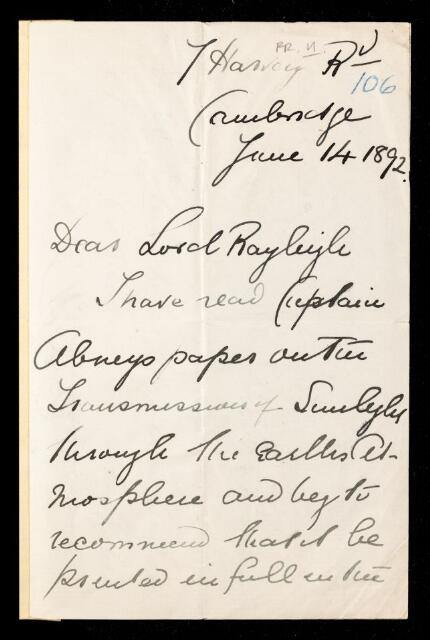 7 Harvey Rd
RR. 11.
106
Cambridge
June 14 1892.
Dear Lord Rayleigh
I have read Captain
Abneys paper on the
Transmission of Sunlight
through the Earths At-
mosphere and beg to
recommend that it be
printed in full in the